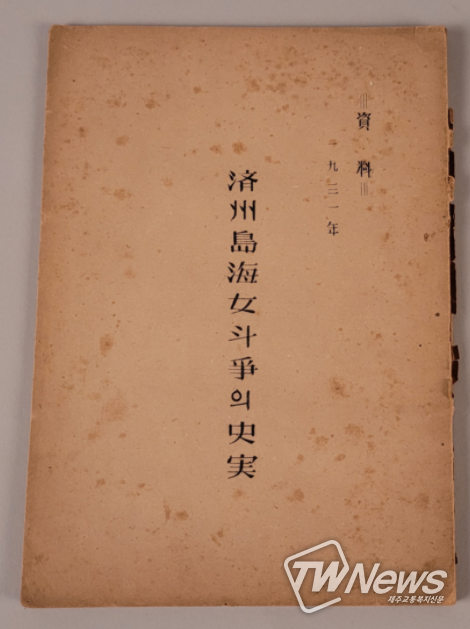 資料
一九三一年
済州島海女斗爭의史実
TWNews
제주교통복지신문